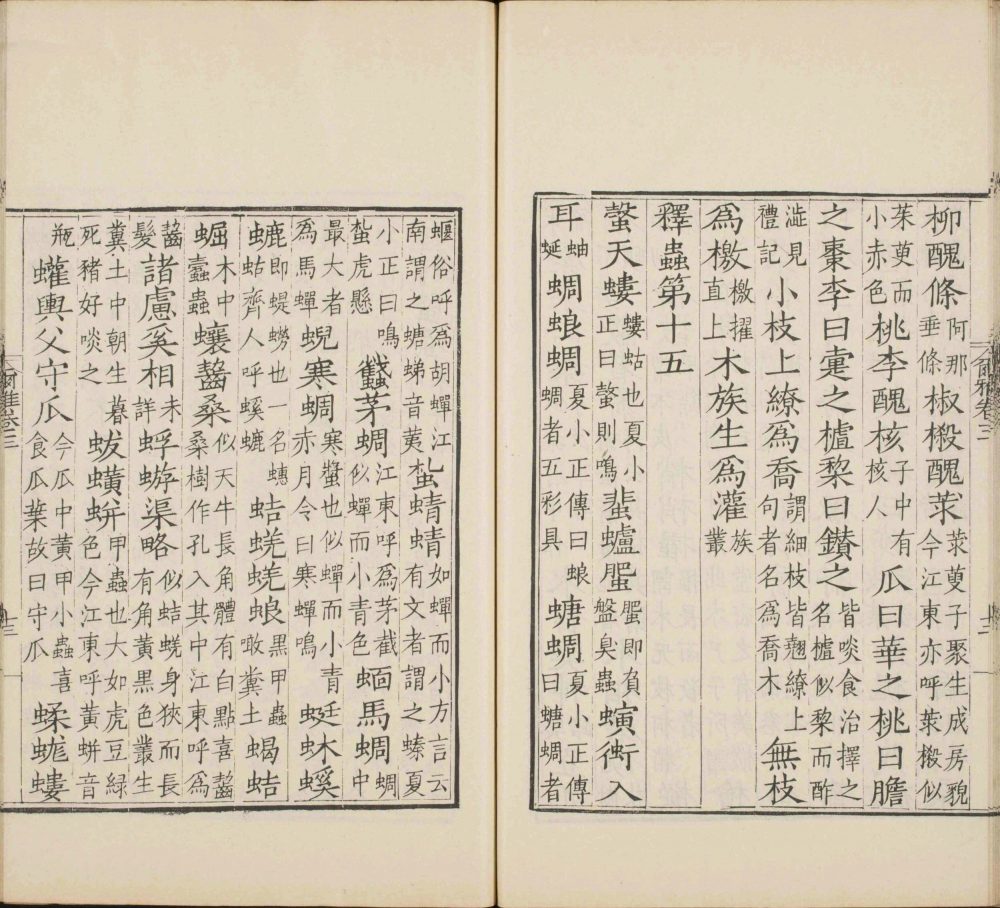 柳醜條阿那垂條椒樧醜莍莍萸子聚生成房貌今江東亦呼莍樧似
茱萸而小赤色桃李醜核子中有核人瓜曰華之桃曰膽
之棗李曰疐之樝棃曰鑚之皆啖食治擇之名樝似棃而酢
澁見禮記小枝上繚爲喬謂細枝皆翹繚上句者名爲喬木無枝
爲檄檄擢直上木族生爲灌族叢
釋蟲第十五
螜天螻螻蛄也夏小正曰螜則鳴蜚蠦蜰蜰即負盤臭蟲螾衝入
耳蚰蜒蜩蜋蜩夏小正傳曰蜋蜩者五彩具螗蜩夏小正傳曰螗蜩者
蝘俗呼爲胡蟬江南謂之螗蛦音荑蚻蜻蜻如蟬而小方言云有文者謂之螓夏
小正曰鳴蚻虎懸蠽茅蜩江東呼爲茅截似蟬而小青色蝒馬蜩蜩中
最大者爲馬蟬蜺寒蜩寒螿也似蟬而小青赤月令曰寒蟬鳴蜓蚞螇
螰即蝭蟧也一名蟪蛄齊人呼螇螰蛣蜣蜣蜋黑甲蟲噉糞土蝎蛣
𧌑木中蠹蟲蠰齧桑似天牛長角體有白點喜齧桑樹作孔入其中江東呼爲
齧髮諸慮奚相未詳蜉蝣渠略似蛣蜣身狹而長有角黃黑色叢生
糞土中朝生暮死豬好啖之蛂蟥蛢甲蟲也大如虎豆緑色今江東呼黃蛢音
瓶蠸輿父守瓜今瓜中黃甲小蟲喜食瓜葉故曰守瓜蝚蛖螻